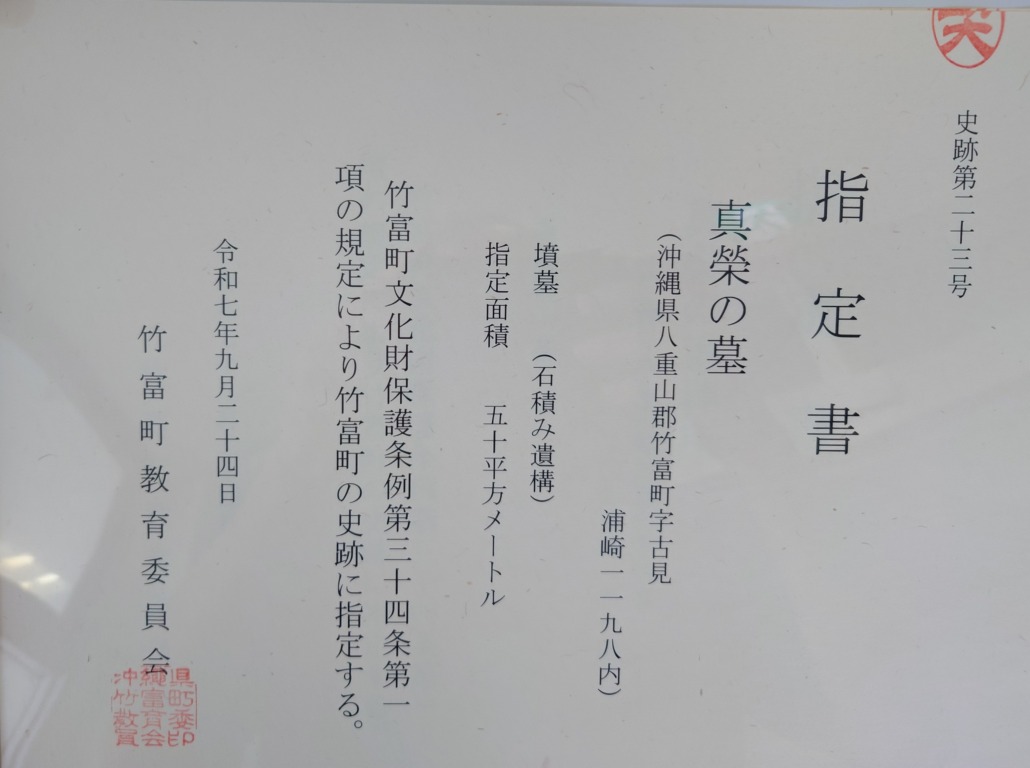 史跡第二十三号
指定書
真榮の墓
(沖縄県八重山郡竹富町字古見
浦崎一一九八内)
墳墓 (石積み遺構)
指定面積 五十平方メートル
竹富町文化財保護条例第三十四条第一
項の規定により竹富町の史跡に指定する。
令和七年九月二十四日
竹富町教育委員会
沖縄県
竹富町
教育委
員会印